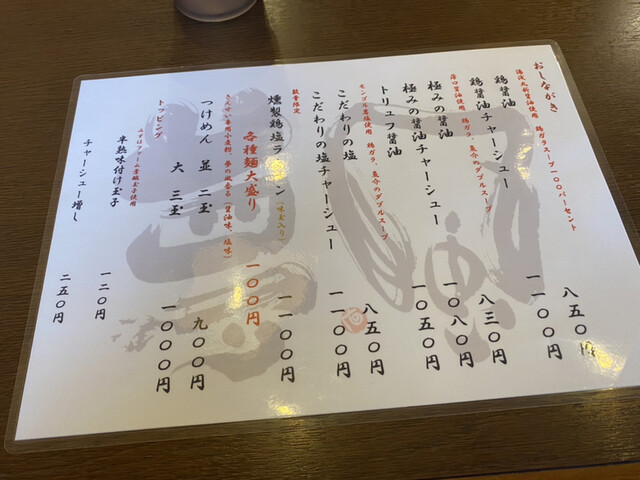 おしながき
湯浅大新醤油使用　鶏ガラスープ一〇〇パーセント
鶏醤油　八五〇円
鶏醤油チャーシュー　一一〇〇円
濃口醤油使用　鶏ガラ、魚介のダブルスープ
極みの醤油　八三〇円
極みの醤油チャーシュー　一〇八〇円
トリュフ醤油　一〇五〇円
モンゴル岩塩使用　鶏ガラ、魚介のダブルスープ
こだわりの塩　八五〇円
こだわりの塩チャーシュー　一一〇〇円
数量限定
燻製鶏塩ラーメン（味玉入り）　一一〇〇円
各種麺大盛り　一〇〇円
つけめん専用小麦粉、夢の風香る（醤油味、塩味）
つけめん　並　二玉　九〇〇円
大　三玉　一〇〇〇円
トッピング
半熟味付け玉子　一二〇円
チャーシュー増し　二五〇円